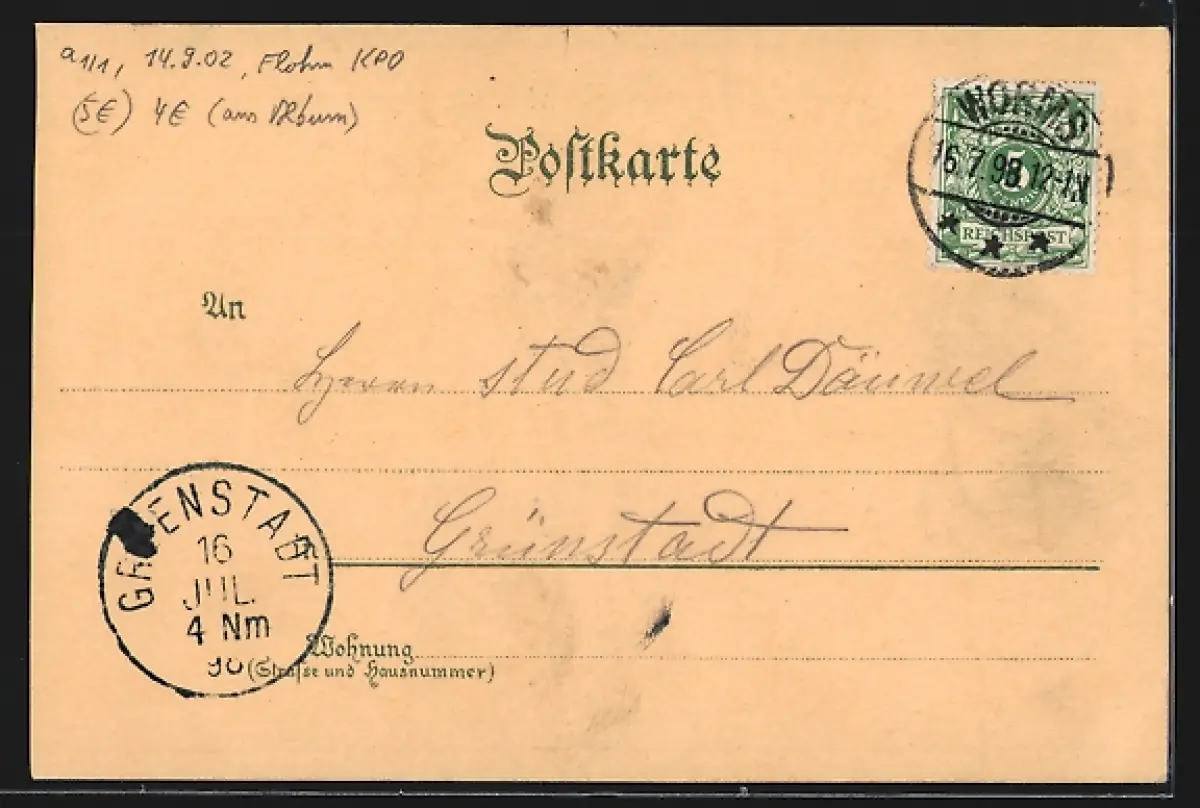 a1/1, 14.9.02, Flohm KPO
(5€) 4€ (aus
Postkarte
WORMS
16.7.98.12-1N
5
REICHSPOST
An
Herrn stud Carl Däuwel
Grünstadt
GRUENSTADT
16
JUL.
4 Nm
Wohnung
(Straſse und Hausnummer)